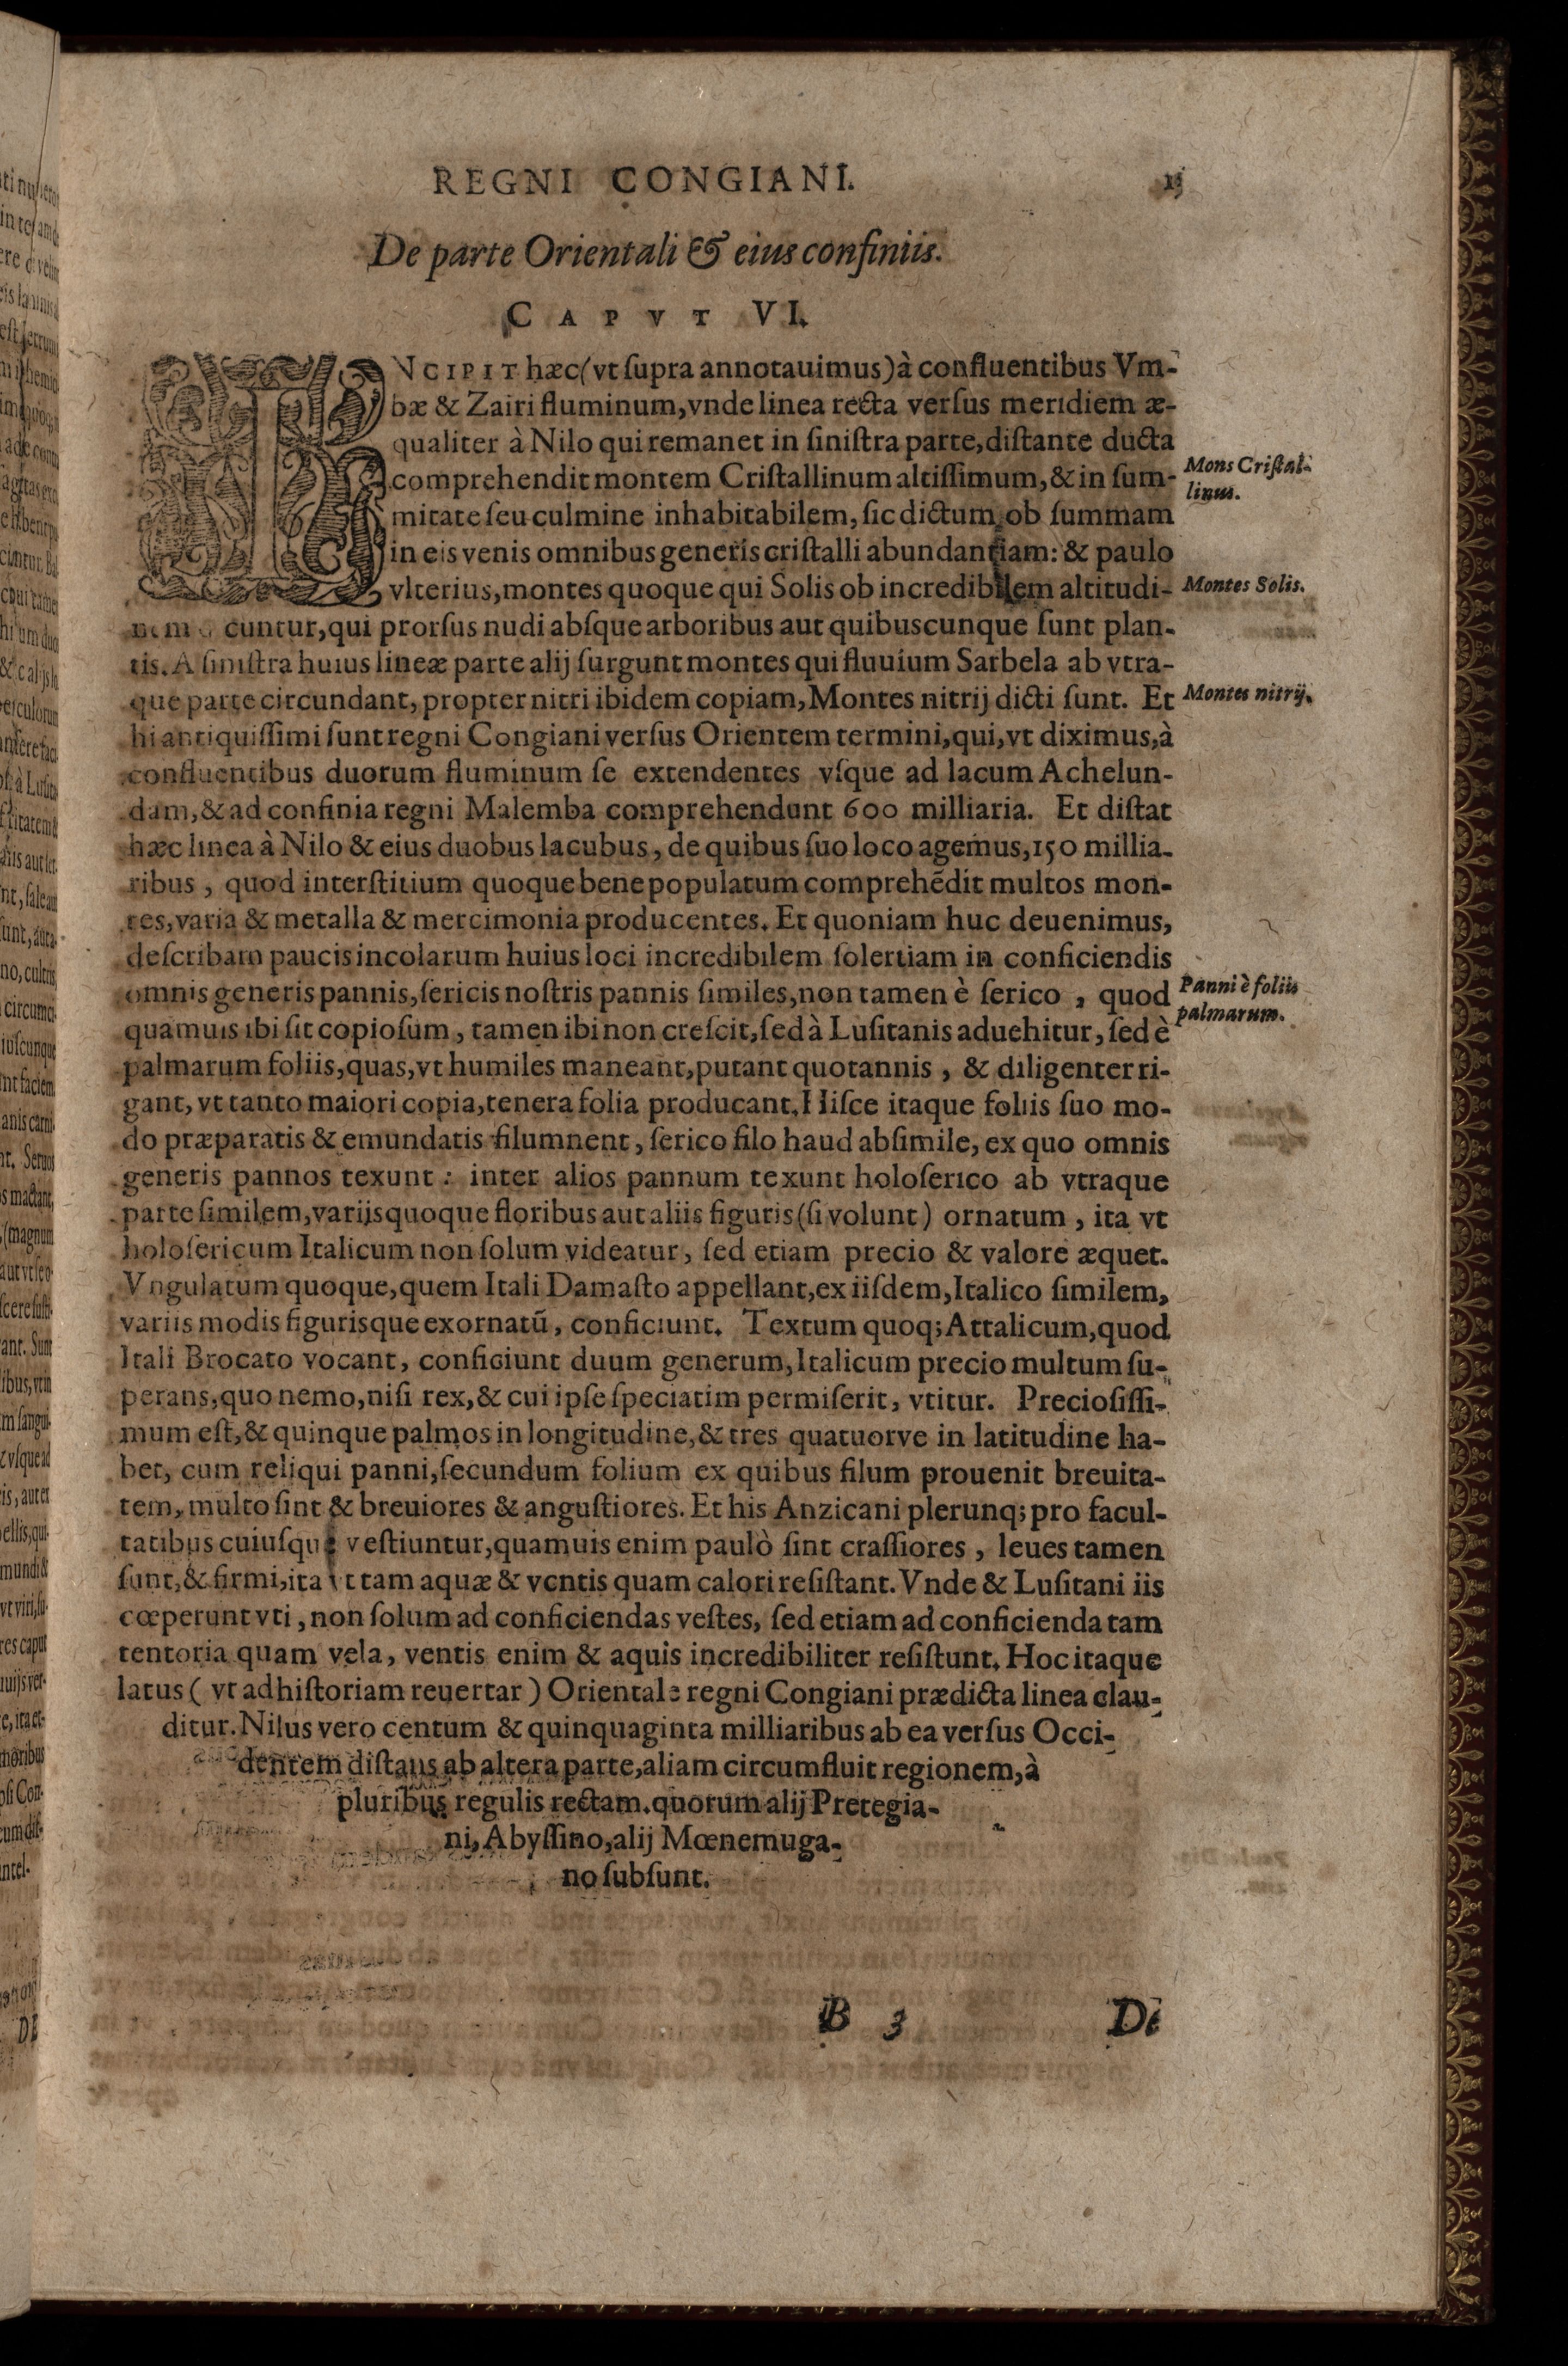 REGNI CONGIANI. 13
De parte Orientali & eius confiniis.
CAPVT VI.
INCIPIT hæc (vt ſupra annotauimus) à confluentibus Vm-
bæ & Zairi fluminum, vnde linea recta verſus meridiem æ-
qualiter à Nilo qui remanet in ſiniſtra parte, diſtante ducta
comprehendit montem Criſtallinum altiſſimum, & in ſum-
mitate ſeu culmine inhabitabilem, ſic dictum, ob ſummam
in eis venis omnibus generis criſtalli abundantiam: & paulo
vlterius, montes quoque qui Solis ob incredibilem altitudi-
nem cuntur, qui prorſus nudi abſque arboribus aut quibuscunque ſunt plan-
tis. A ſiniſtra huius lineæ parte alij ſurgunt montes qui fluuium Sarbela ab vtra-
que parte circundant, propter nitri ibidem copiam, Montes nitrij dicti ſunt. Et
hi antiquiſſimi ſunt regni Congiani verſus Orientem termini, qui, vt diximus, à
confluentibus duorum fluminum ſe extendentes vſque ad lacum Achelun-
dam, & ad confinia regni Malemba comprehendunt 600 milliaria. Et diſtat
hæc linea à Nilo & eius duobus lacubus, de quibus ſuo loco agemus, 150 millia-
ribus, quod interſtitium quoque bene populatum comprehēdit multos mon-
tes, varia & metalla & mercimonia producentes. Et quoniam huc deuenimus,
deſcribam paucis incolarum huius loci incredibilem ſolertiam in conficiendis
omnis generis pannis, ſericis noſtris pannis ſimiles, non tamen è ſerico, quod
quamuis ibi ſit copioſum, tamen ibi non creſcit, ſed à Luſitanis aduehitur, ſed è
palmarum foliis, quas, vt humiles maneant, putant quotannis, & diligenter ri-
gant, vt tanto maiori copia, tenera folia producant. Hiſce itaque foliis ſuo mo-
do præparatis & emundatis filum nent, ſerico filo haud abſimile, ex quo omnis
generis pannos texunt: inter alios pannum texunt holoſerico ab vtraque
parte ſimilem, varijs quoque floribus aut aliis figuris (ſi volunt) ornatum, ita vt
holoſericum Italicum non ſolum videatur, ſed etiam precio & valore æquet.
Vngulatum quoque, quem Itali Damaſto appellant, ex iiſdem, Italico ſimilem,
variis modis figurisque exornatū, conficiunt. Textum quoq; Attalicum, quod
Itali Brocato vocant, conficiunt duum generum, Italicum precio multum ſu-
perans, quo nemo, niſi rex, & cui ipſe ſpeciatim permiſerit, vtitur. Precioſiſſi-
mum eſt, & quinque palmos in longitudine, & tres quatuorve in latitudine ha-
bet, cum reliqui panni, ſecundum folium ex quibus filum prouenit breuita-
tem, multo ſint & breuiores & anguſtiores. Et his Anzicani plerunq; pro facul-
tatibus cuiuſque veſtiuntur, quamuis enim paulò ſint craſſiores, leues tamen
ſunt, & firmi, ita vt tam aquæ & ventis quam calori reſiſtant. Vnde & Luſitani iis
cœperunt vti, non ſolum ad conficiendas veſtes, ſed etiam ad conficienda tam
tentoria quam vela, ventis enim & aquis incredibiliter reſiſtunt. Hoc itaque
latus (vt ad hiſtoriam reuertar) Orientale regni Congiani prædicta linea clau-
ditur. Nilus vero centum & quinquaginta milliaribus ab ea verſus Occi-
dentem diſtans ab altera parte, aliam circumfluit regionem, à
pluribus regulis rectam. quorum alij Pretegia-
ni, Abyſſino, alij Mœnemuga-
no ſubſunt.
B 3 De
Mons Criſtal-
linus.
Montes Solis.
Montes nitrij.
Panni è foliis
palmarum.